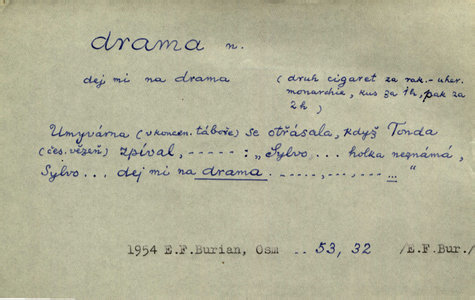 drama n.
dej mi na drama (druh cigaret za rak.-uher.
monarchie, kus za 1h, pak za
2h)
Umyvárna (v koncen. táboře) se otřásala, když Tonda
(čes. vězeň) zpíval, ----- : „Sylvo... holka neznámá,
Sylvo... dej mi na drama. -----, ---, --- ... "
1954 E.F.Burian, Osm .. 53, 32 /E.F.Bur./